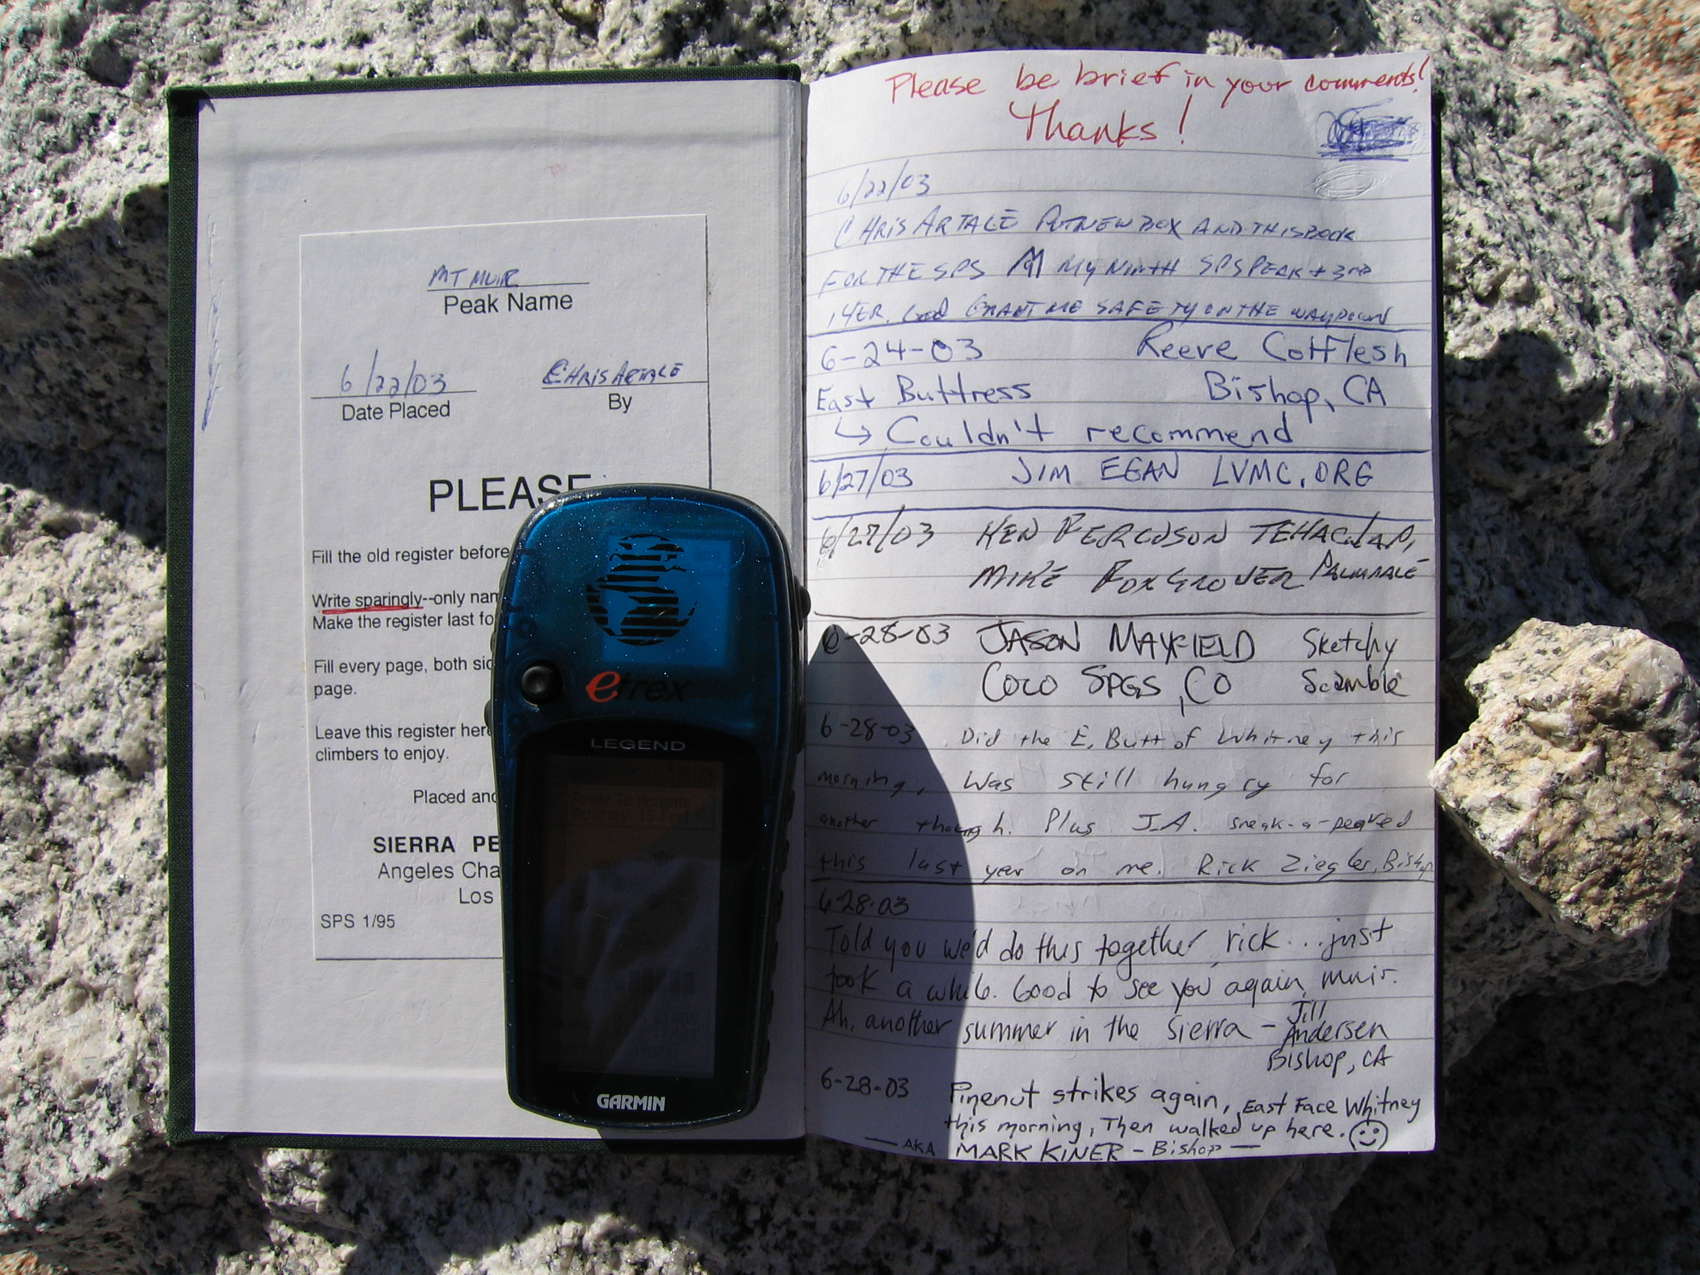 MT MUIR
Peak Name
6/22/03 CHRIS ARTALE
Date Placed By
PLEASE
Fill the old register before
Write sparingly--only
Make the register last
Fill every page, both
page.
Leave this register here
climbers to enjoy.
Placed and
SIERRA
Angeles
Los
SPS 1/95
etrex
LEGEND
GARMIN
Please be brief in your comments!
Thanks!
6/22/03
CHRIS ARTALE PUT NEW BOX AND THIS BOOK
FOR THE SPS MY NINTH SPS PEAK + 3RD
14ER. GOD GRANT ME SAFETY ON THE WAY DOWN
6-24-03 Reeve
East Buttress Bishop, CA
↳ Couldn't recommend
6/27/03 JIM EGAN LVMC.ORG
6/27/03 KEN FERGUSON
MIKE FOXGROVER PALMDALE
6-28-03 JASON MAYFIELD Sketchy
COLO SPGS, CO Scramble
6-28-03 Did the E. Butt of Whitney this
morning, Was still hungry for
another though. Plus J.A. sneak-a-peaked
this last year on me. Rick Ziegler, Bishop
6-28-03
Told you we'd do this together, rick...just
took a while. Good to see you again, muir.
Ah, another summer in the Sierra - Jill
Andersen
Bishop, CA
6-28-03 Pinenut strikes again, East Face Whitney
this morning, Then walked up here.
— AKA MARK KINER - Bishop —